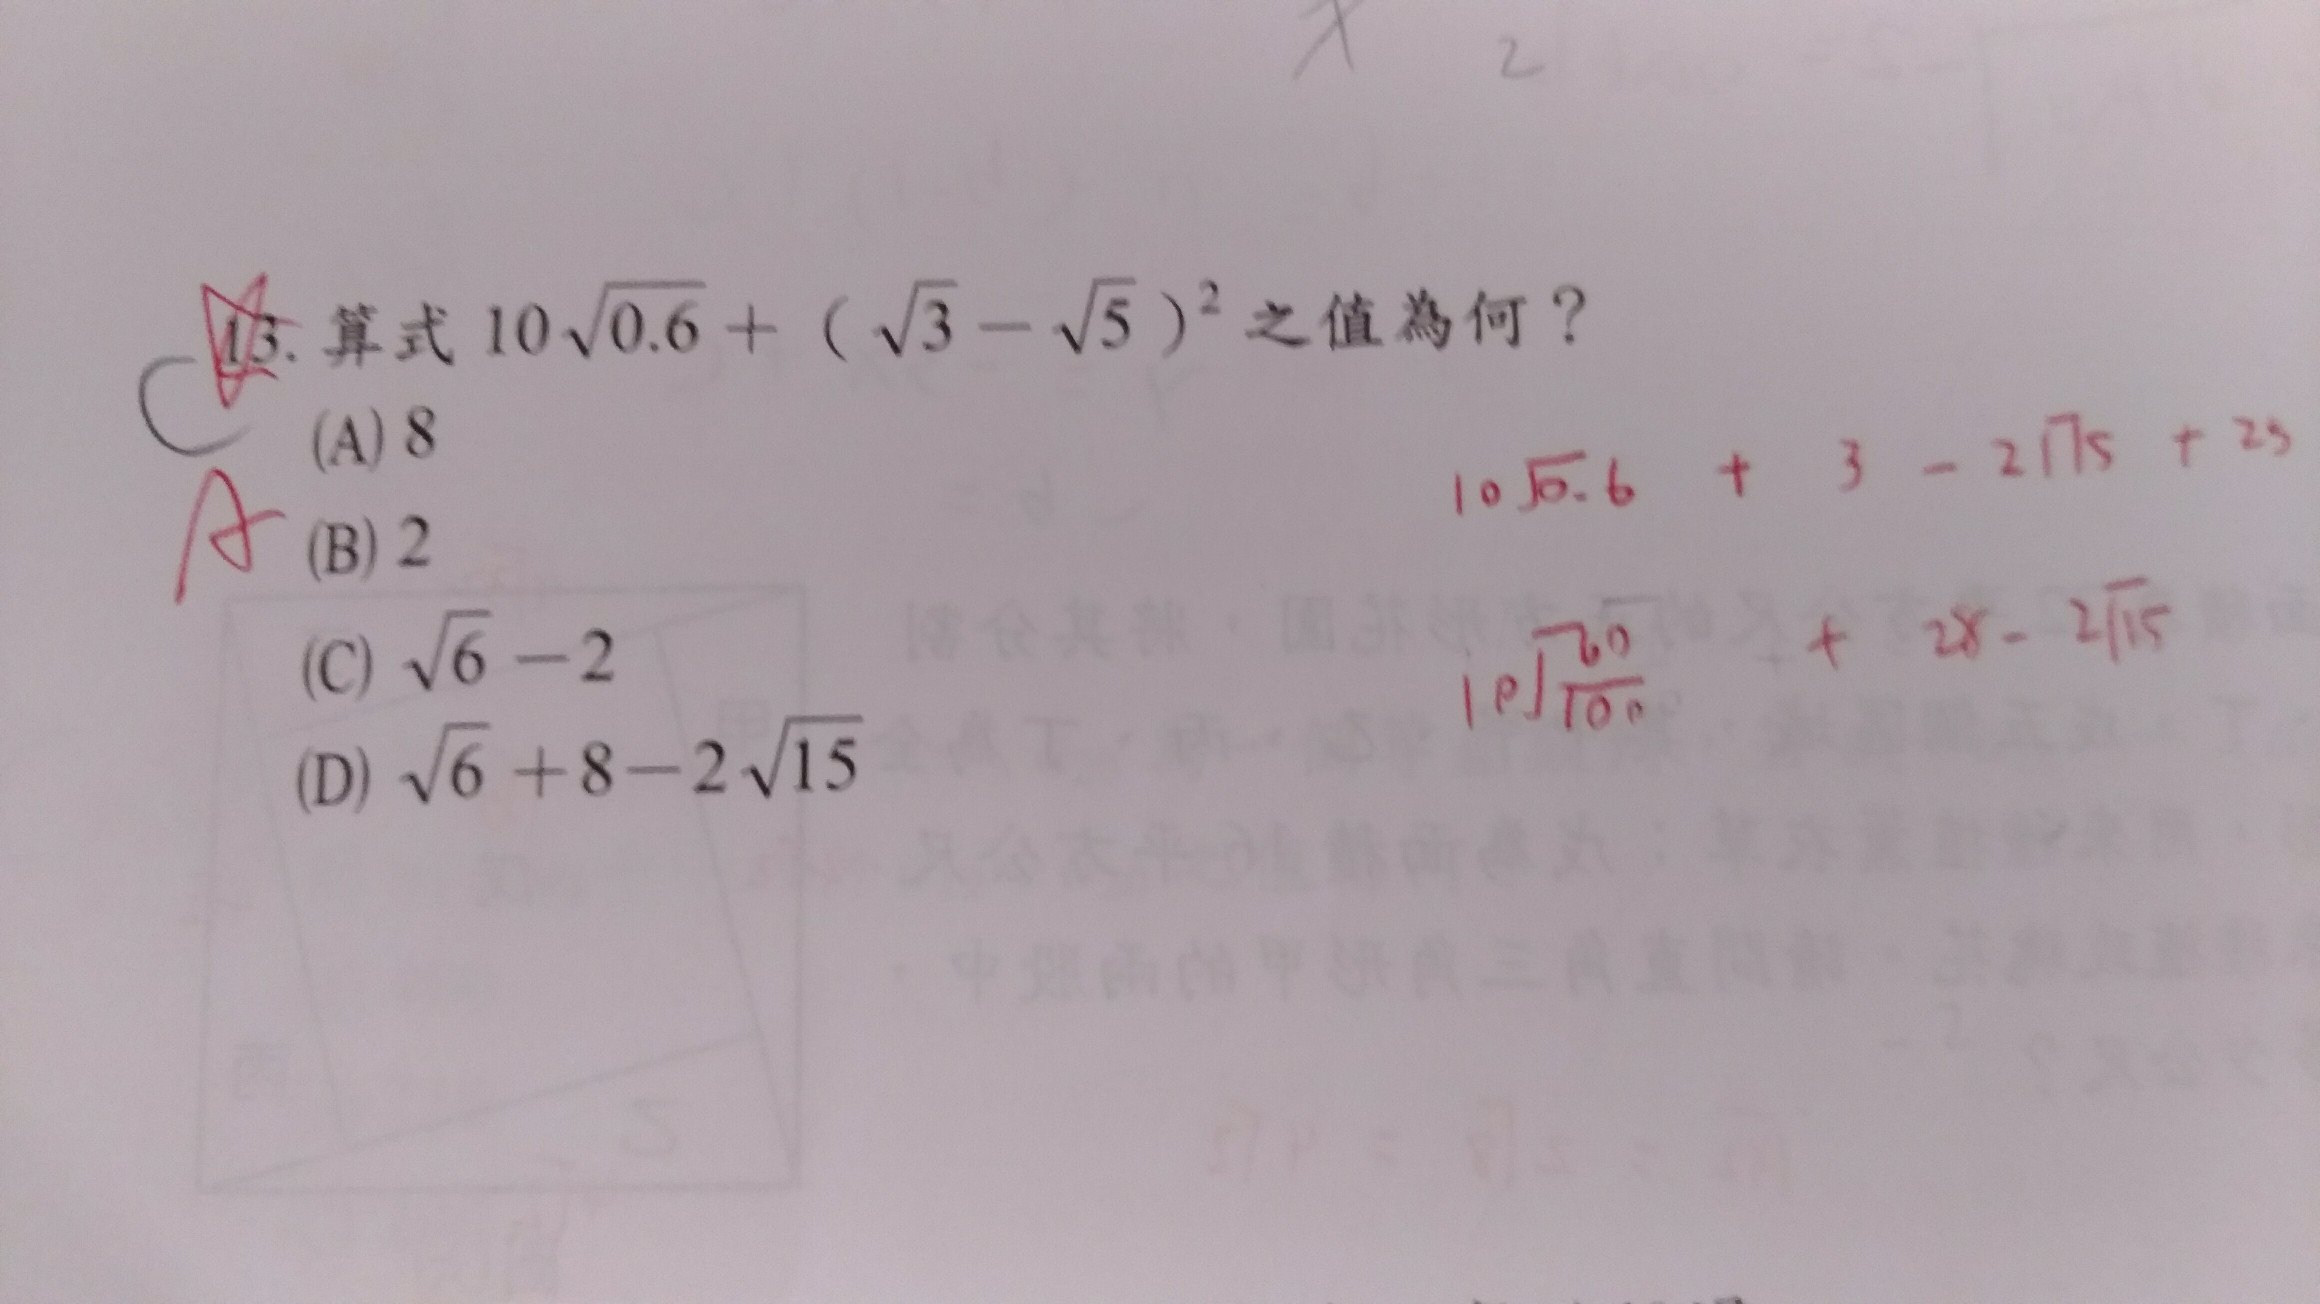 x 2
13. 算式 10√0.6 + ( √3 − √5 )² 之值為何？
C
(A) 8
A
(B) 2
(C) √6 − 2
(D) √6 + 8 − 2√15
10√0.6 + 3 − 2√15 + 25
10√60/100 + 28 − 2√15